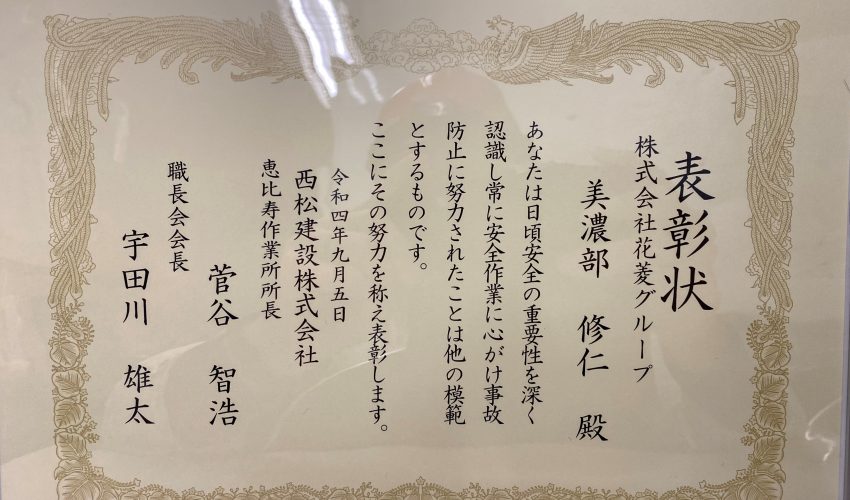 表彰状
株式会社花菱グループ
美濃部 修仁 殿
あなたは日頃安全の重要性を深く
認識し常に安全作業に心がけ事故
防止に努力されたことは他の模範
とするものです。
ここにその努力を称え表彰します。
令和四年九月五日
西松建設株式会社
恵比寿作業所所長
菅谷 智浩
職長会会長
宇田川 雄太